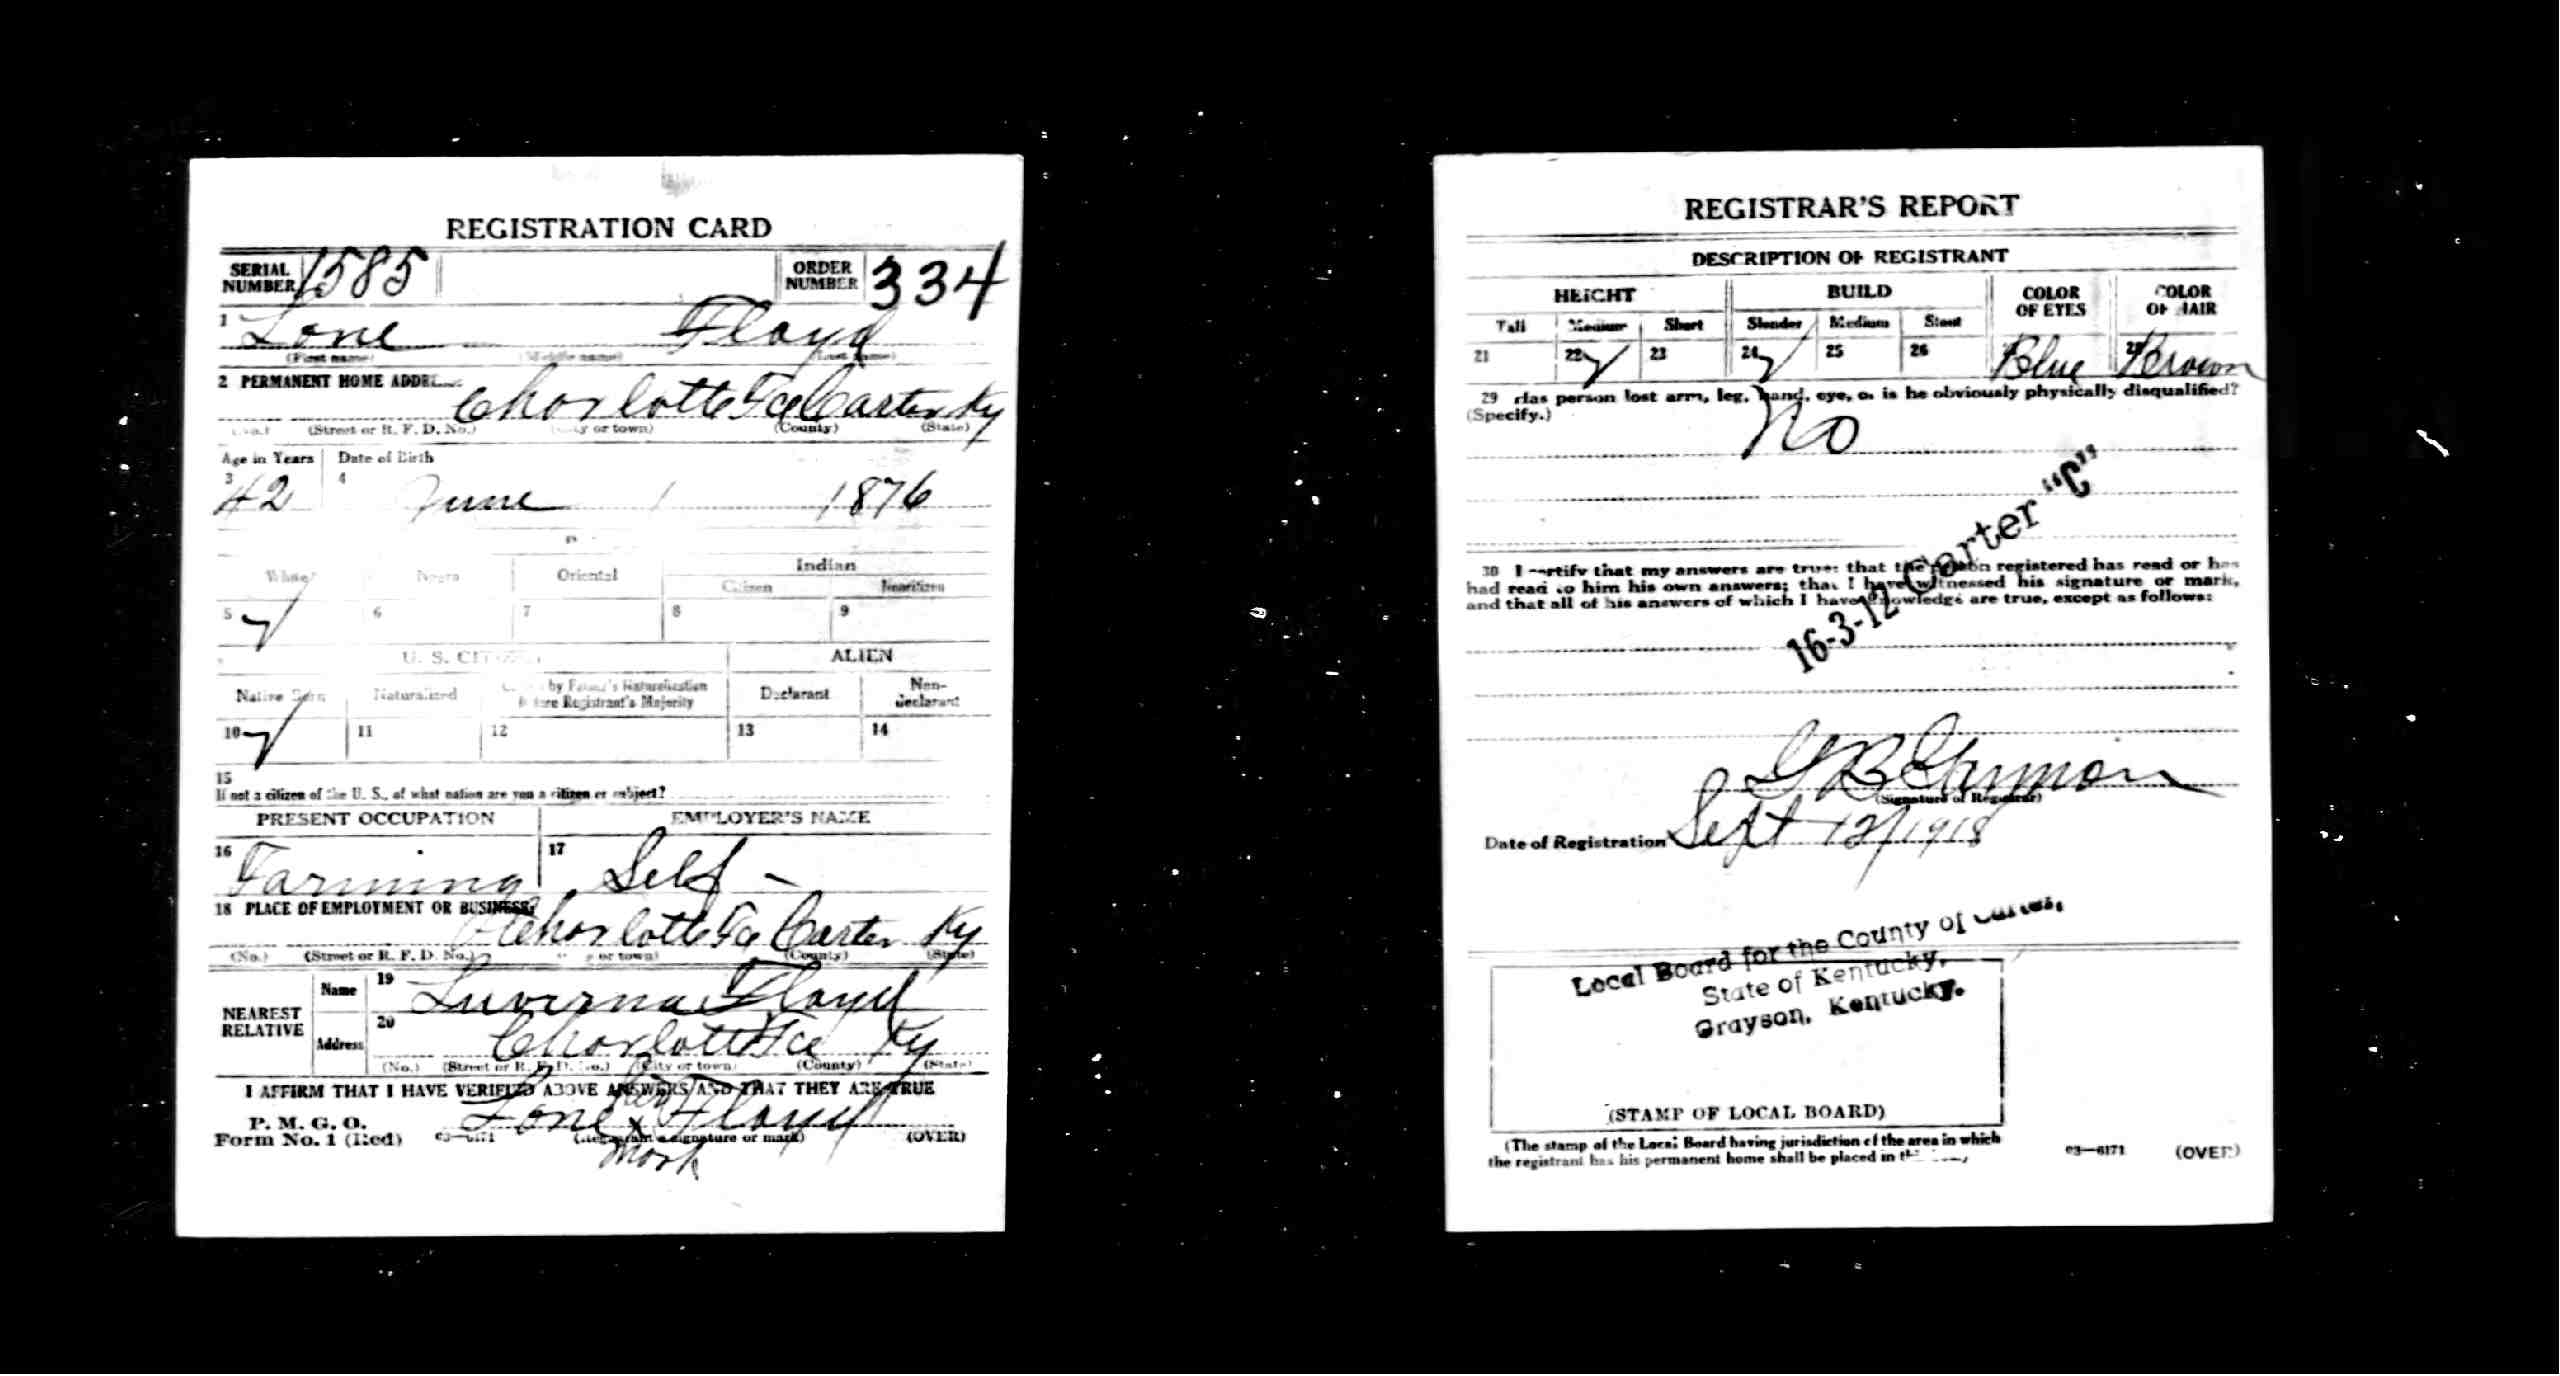 REGISTRATION CARD
SERIAL NUMBER 1585
ORDER NUMBER 334
1 Lone Floyd
(First name) (Middle name) (Last name)
2 PERMANENT HOME ADDRESS
Charlotte Fce Carter Ky
(No.) (Street or R. F. D. No.) (City or town) (County) (State)
Age in Years Date of Birth
3 42 4 June 1 1876
Indian
White Negro Oriental Citizen Noncitizen
5 ✓ 6 7 8 9
U. S. CITIZEN ALIEN
Native Born Naturalized by Father's Naturalization Before Registrant's Majority Declarant Non-declarant
10 ✓ 11 12 13 14
15
If not a citizen of the U. S., of what nation are you a citizen or subject?
PRESENT OCCUPATION EMPLOYER'S NAME
16 Farming 17 Self -
18 PLACE OF EMPLOYMENT OR BUSINESS:
Charlotte Fce Carter Ky
(No.) (Street or R. F. D. No.) (City or town) (County) (State)
NEAREST RELATIVE
Name 19 Luverna Floyd
Address 20 Charlotte Fce Ky
(No.) (Street or R. F. D. No.) (City or town) (County) (State)
I AFFIRM THAT I HAVE VERIFIED ABOVE ANSWERS AND THAT THEY ARE TRUE
P. M. G. O.
Form No. 1 (Red) 03—6171 Lone his x mark Floyd
(Registrant's signature or mark) (OVER)
REGISTRAR'S REPORT
DESCRIPTION OF REGISTRANT
HEIGHT BUILD COLOR OF EYES COLOR OF HAIR
Tall Medium Short Slender Medium Stout
21 22 ✓ 23 24 ✓ 25 26 Blue 28 Brown
29 Has person lost arm, leg, hand, eye, or is he obviously physically disqualified?
(Specify.) No
16-3-12 Carter "C"
30 I certify that my answers are true; that the person registered has read or has
had read to him his own answers; that I have witnessed his signature or mark,
and that all of his answers of which I have knowledge are true, except as follows:
G B Garmon
(Signature of Registrar)
Date of Registration Sept 12/1918
Local Board for the County of Carter,
State of Kentucky,
Grayson, Kentucky.
(STAMP OF LOCAL BOARD)
(The stamp of the Local Board having jurisdiction of the area in which
the registrant has his permanent home shall be placed in this
03—6171 (OVER)